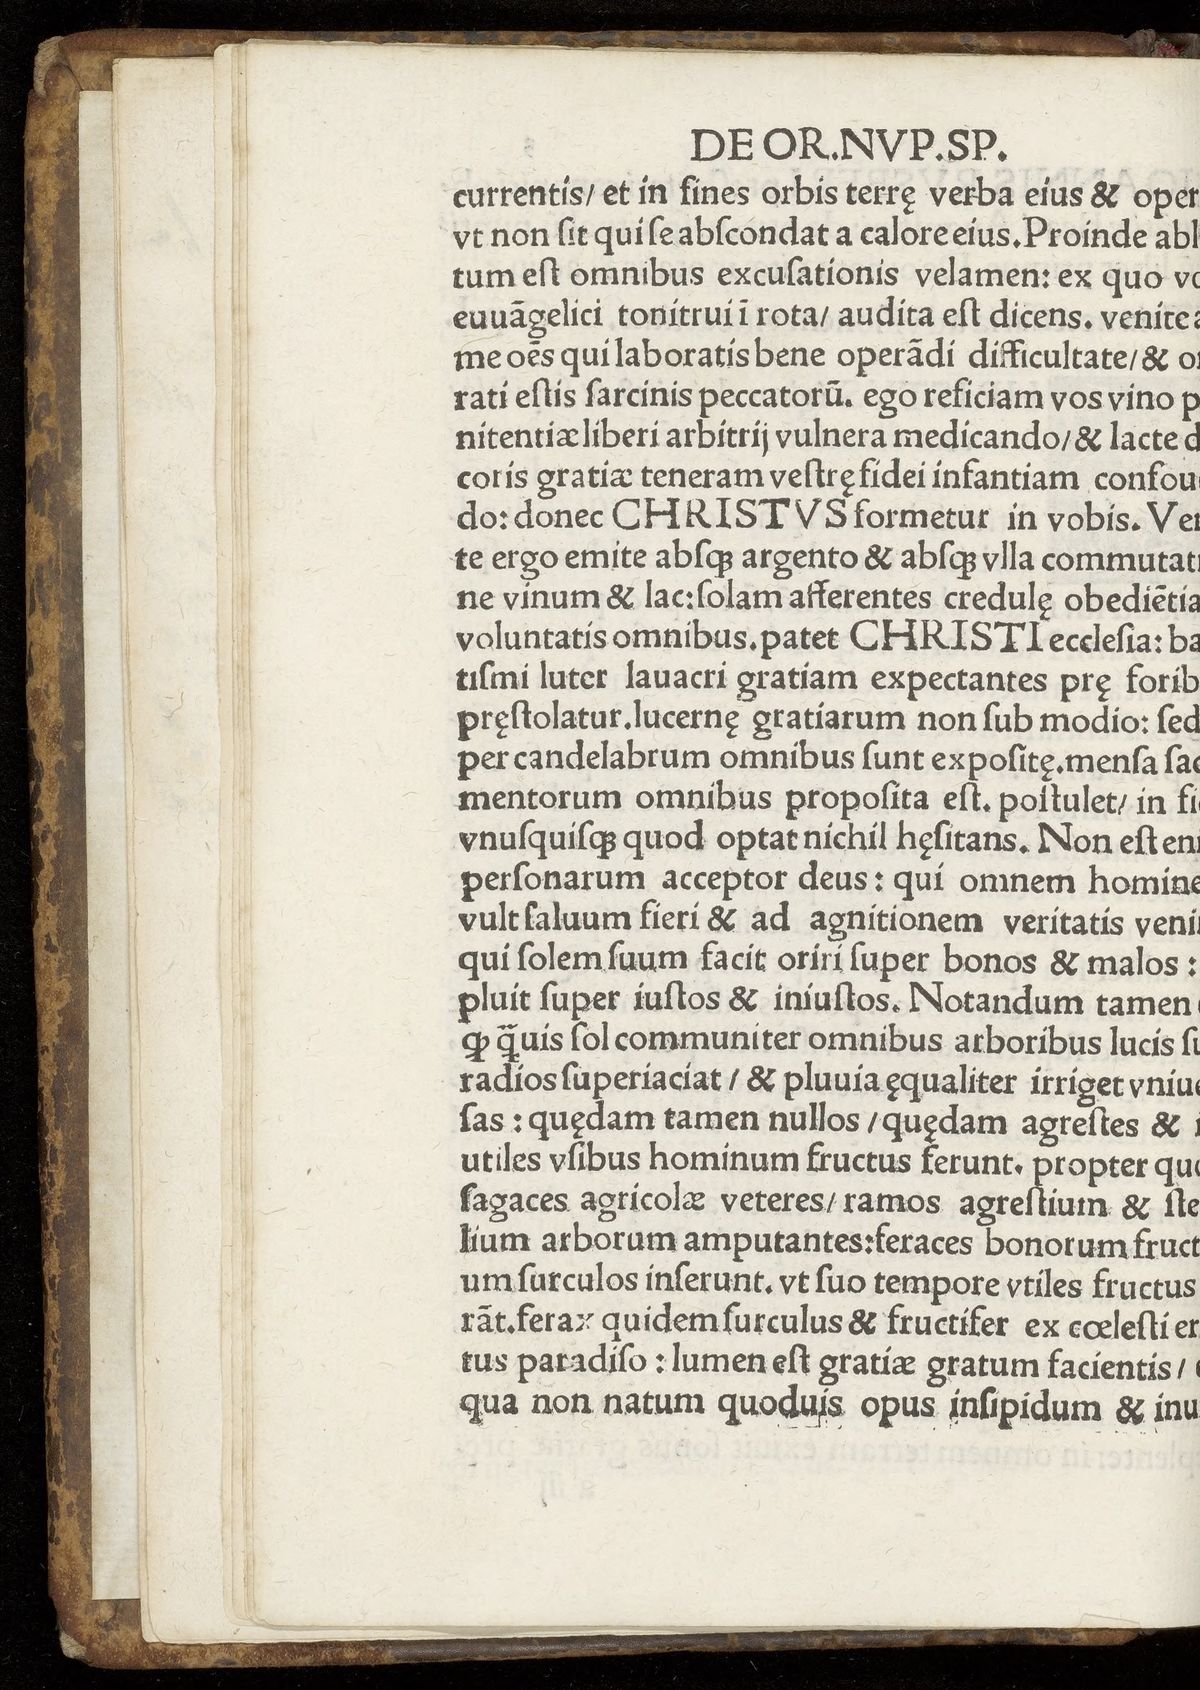 DE OR.NVP.SP.
currentis/ et in fines orbis terrę verba eius & oper
vt non ſit qui ſe abſcondat a calore eius.Proinde abl
tum eſt omnibus excuſationis velamen: ex quo vo
euuāgelici tonitrui ī rota/ audita eſt dicens. venite a
me oēs qui laboratis bene operādi difficultate/ & o
rati eſtis ſarcinis peccatorū. ego reficiam vos vino p
nitentiæ liberi arbitrij vulnera medicando/ & lacte d
coris gratiæ teneram veſtrę fidei infantiam confou
do: donec CHRISTVS formetur in vobis. Ve
te ergo emite abſqꝫ argento & abſqꝫ vlla commutati
ne vinum & lac: ſolam afferentes credulę obediētia
voluntatis omnibus.patet CHRISTI eccleſia: ba
tiſmi luter lauacri gratiam expectantes prę forib
pręſtolatur.lucernę gratiarum non ſub modio: ſed
per candelabrum omnibus ſunt expoſitę.menſa ſac
mentorum omnibus propoſita eſt. poſtulet/ in fi
vnuſquiſqꝫ quod optat nichil hęſitans. Non eſt eni
perſonarum acceptor deus : qui omnem homine
vult ſaluum fieri & ad agnitionem veritatis veni
qui ſolem ſuum facit oriri ſuper bonos & malos :
pluit ſuper iuſtos & iniuſtos. Notandum tamen
qꝫ q̄uis ſol communiter omnibus arboribus lucis ſu
radios ſuperiaciat / & pluuia ęqualiter irriget vniue
ſas : quędam tamen nullos / quędam agreſtes &
utiles vſibus hominum fructus ferunt. propter quo
ſagaces agricolæ veteres/ ramos agreſtium & ſte
lium arborum amputantes:feraces bonorum fruct
um ſurculos inſerunt. vt ſuo tempore vtiles fructus
rāt.ferax quidem ſurculus & fructifer ex cœleſti er
tus paradiſo : lumen eſt gratiæ gratum facientis /
qua non natum quoduis opus inſipidum & inu